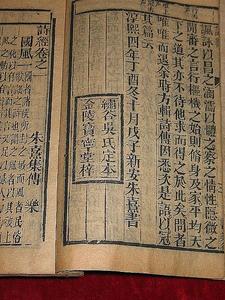 諷詠以昌之涵濡以體之察之情性隱微之
間審之言行樞機之始則脩身及家平均天
下之道其亦不待他求而得之於此矣問者
唯唯而退余時方輯詩傳因悉次是語以冠
其篇云
淳熙四年丁酉冬十月戊子新安朱熹書
繡谷吳氏定本
金陵寶堂梓
詩經卷之
朱熹集傳
國風一